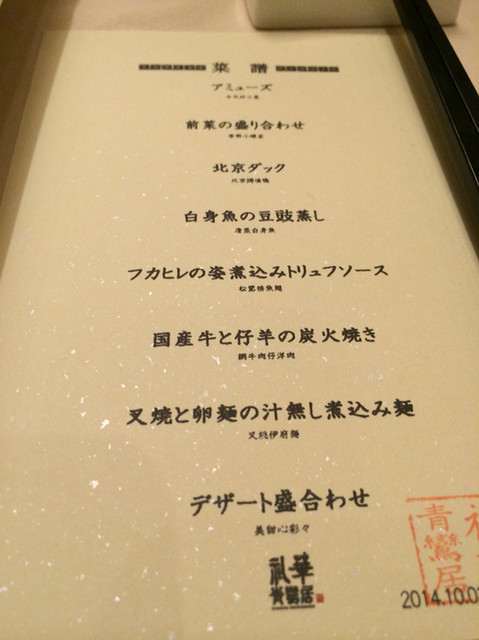 菜譜
アミューズ
前菜の盛り合わせ
北京ダック
北京烤填鴨
白身魚の豆豉蒸し
清蒸白身魚
フカヒレの姿煮込みトリュフソース
国産牛と仔羊の炭火焼き
網牛肉仔洋肉
叉焼と卵麺の汁無し煮込み麺
叉焼伊府麺
デザート盛合わせ
美甜心彩々
礼華
青鸞居
青鸞居
2014.10.0